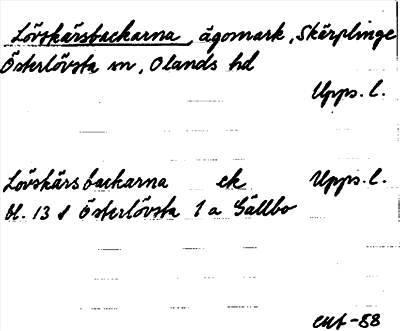 Lövskärsbackarna, ägomark, Skärplinge
Österlövsta sn, Olands hd
Upps. l.
Lövskärsbackarna ek Upps. l.
bl. 13 8 Österlövsta 1 a Gällbo